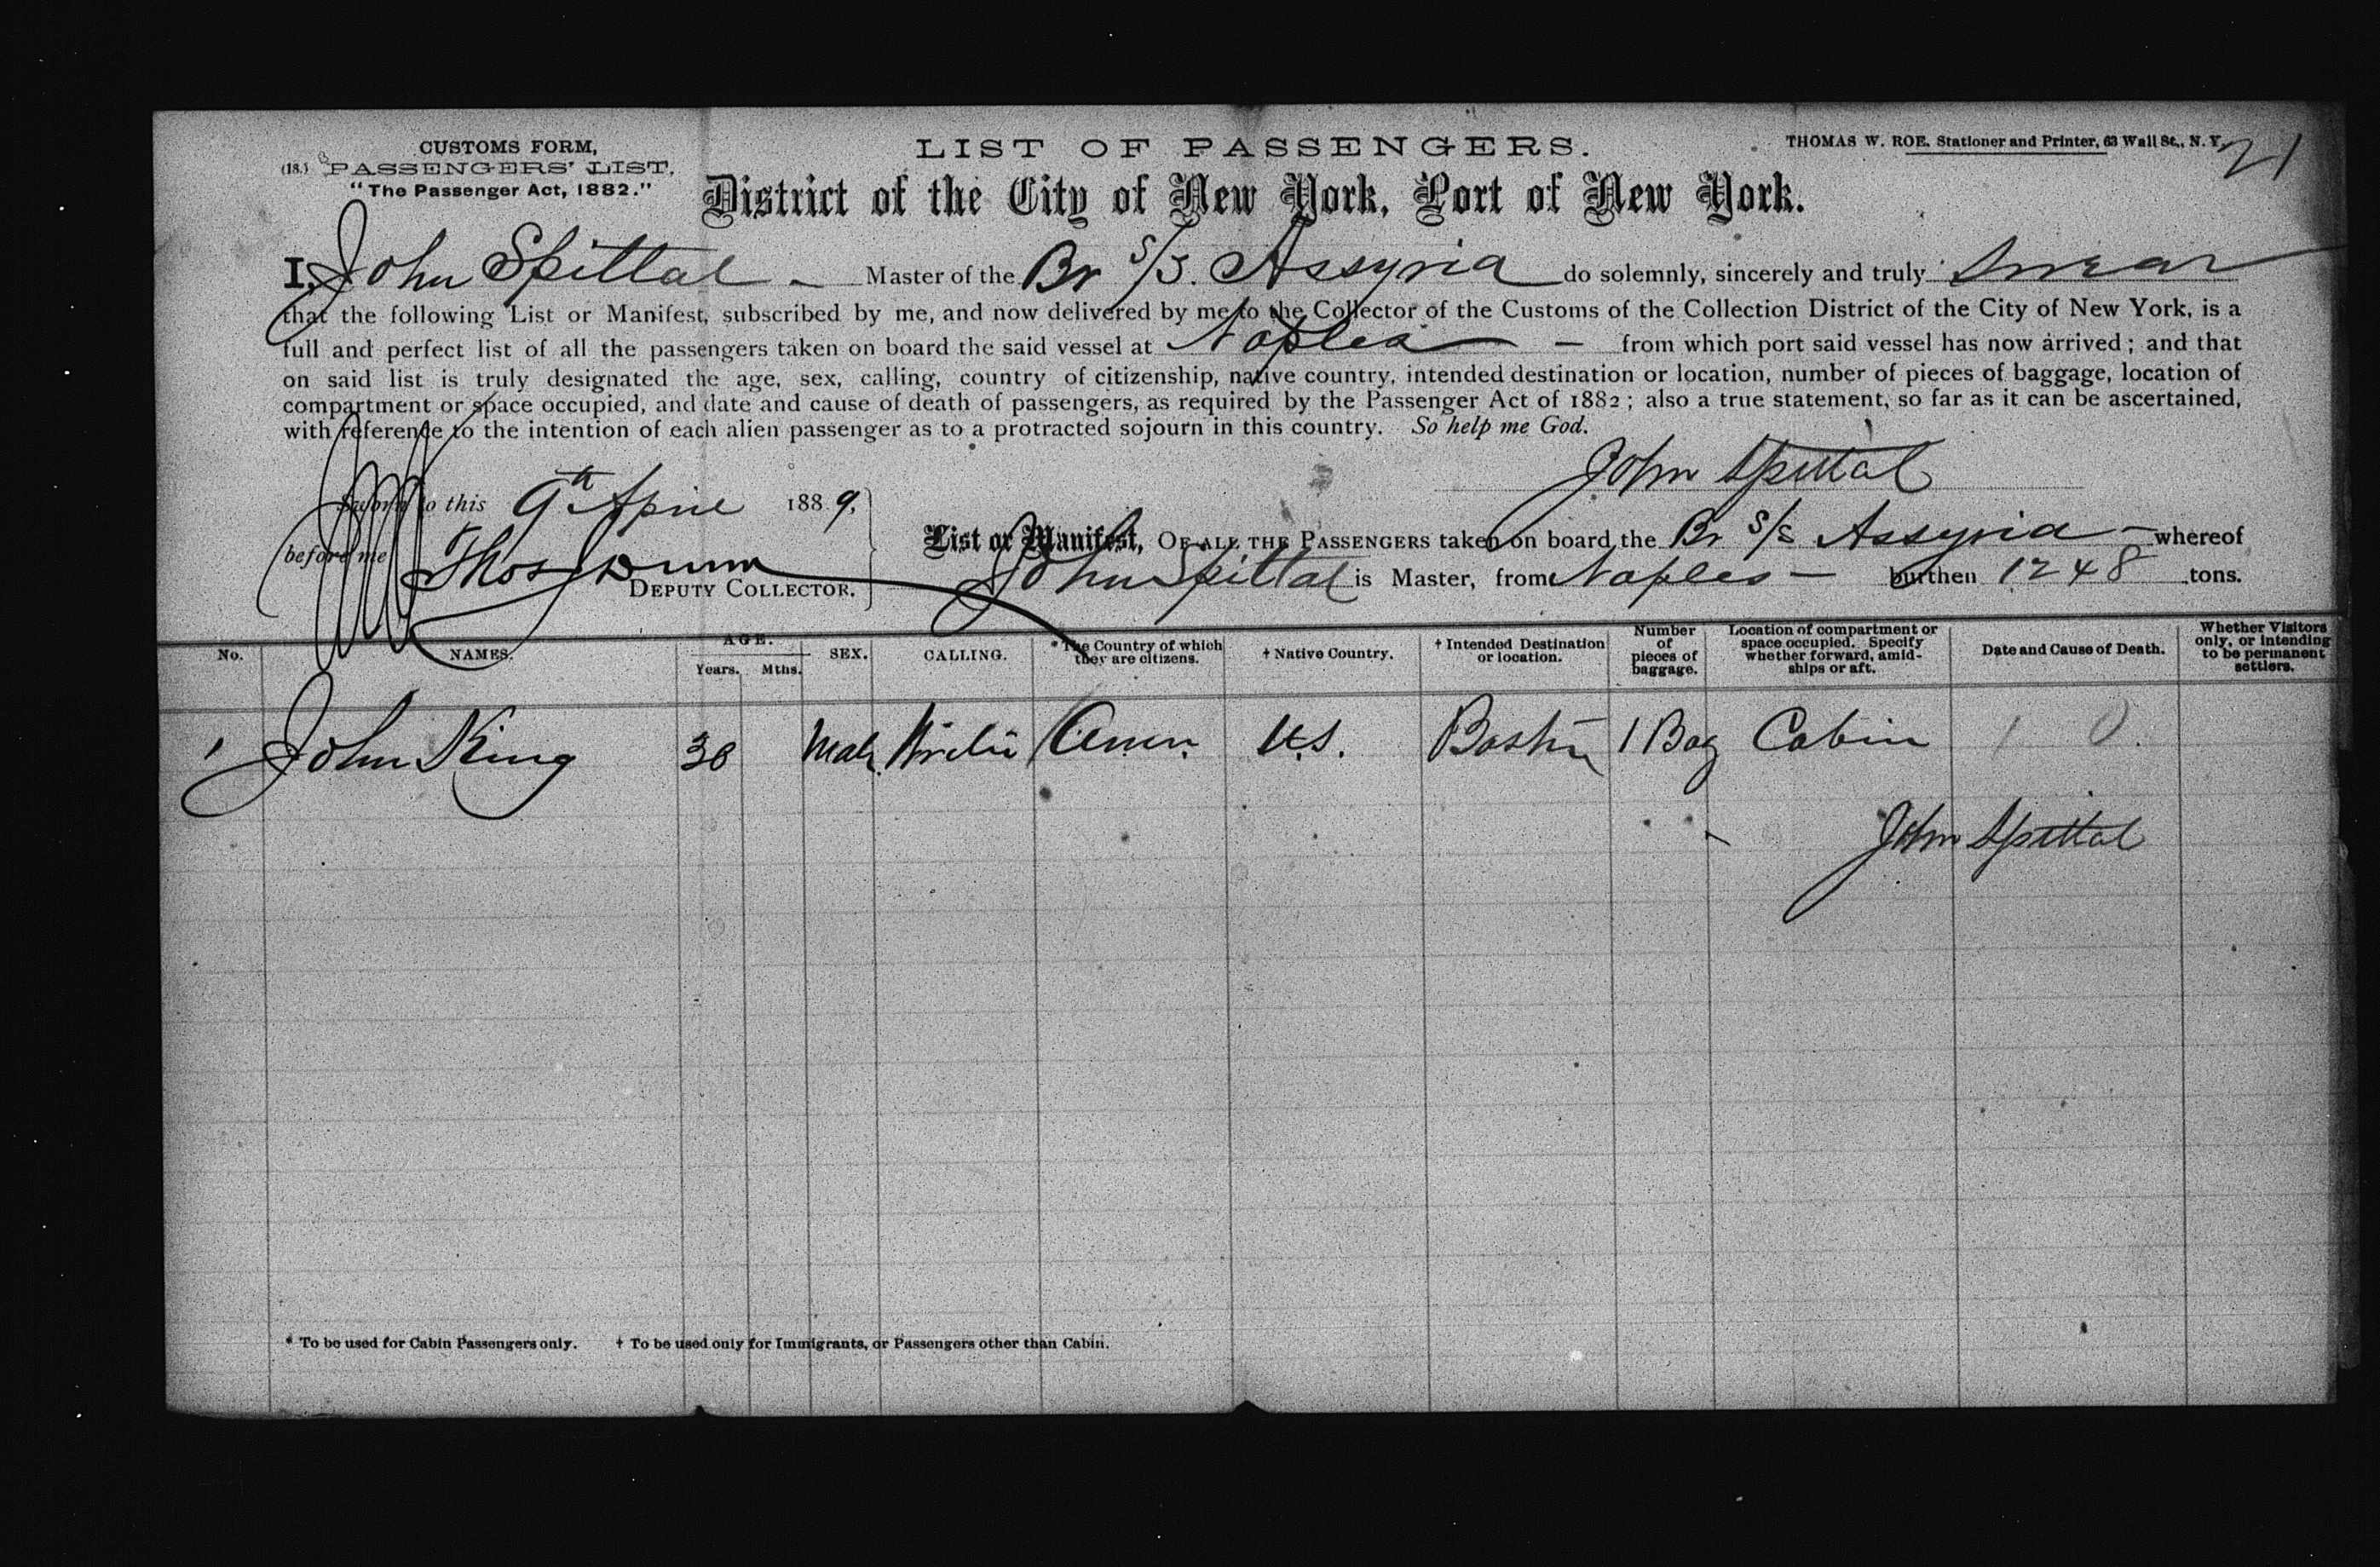 CUSTOMS FORM,
(18.) PASSENGERS' LIST,
"The Passenger Act, 1882."
LIST OF PASSENGERS.
THOMAS W. ROE, Stationer and Printer, 63 Wall St., N. Y.
21
District of the City of New York, Port of New York.
I, John Spittal - Master of the Br S/S. Assyria do solemnly, sincerely and truly swear
that the following List or Manifest, subscribed by me, and now delivered by me to the Collector of the Customs of the Collection District of the City of New York, is a
full and perfect list of all the passengers taken on board the said vessel at Naples - from which port said vessel has now arrived; and that
on said list is truly designated the age, sex, calling, country of citizenship, native country, intended destination or location, number of pieces of baggage, location of
compartment or space occupied, and date and cause of death of passengers, as required by the Passenger Act of 1882; also a true statement, so far as it can be ascertained,
with reference to the intention of each alien passenger as to a protracted sojourn in this country. So help me God.
John Spittal
Sworn to this 9th April 1889,
before me Thos Dunn
DEPUTY COLLECTOR.
List or Manifest, OF ALL THE PASSENGERS taken on board the Br S/S Assyria - whereof
John Spittal is Master, from Naples - burthen 1248 tons.
No. NAMES. AGE. Years. Mths. SEX. CALLING. * The Country of which they are citizens. † Native Country. † Intended Destination or location. Number of pieces of baggage. Location of compartment or space occupied. Specify whether forward, amidships or aft. Date and Cause of Death. Whether Visitors only, or intending to be permanent settlers.
1 John King 30 Male Amer. U.S. Boston 1 Bag Cabin 1 0
John Spittal
* To be used for Cabin Passengers only. † To be used only for Immigrants, or Passengers other than Cabin.